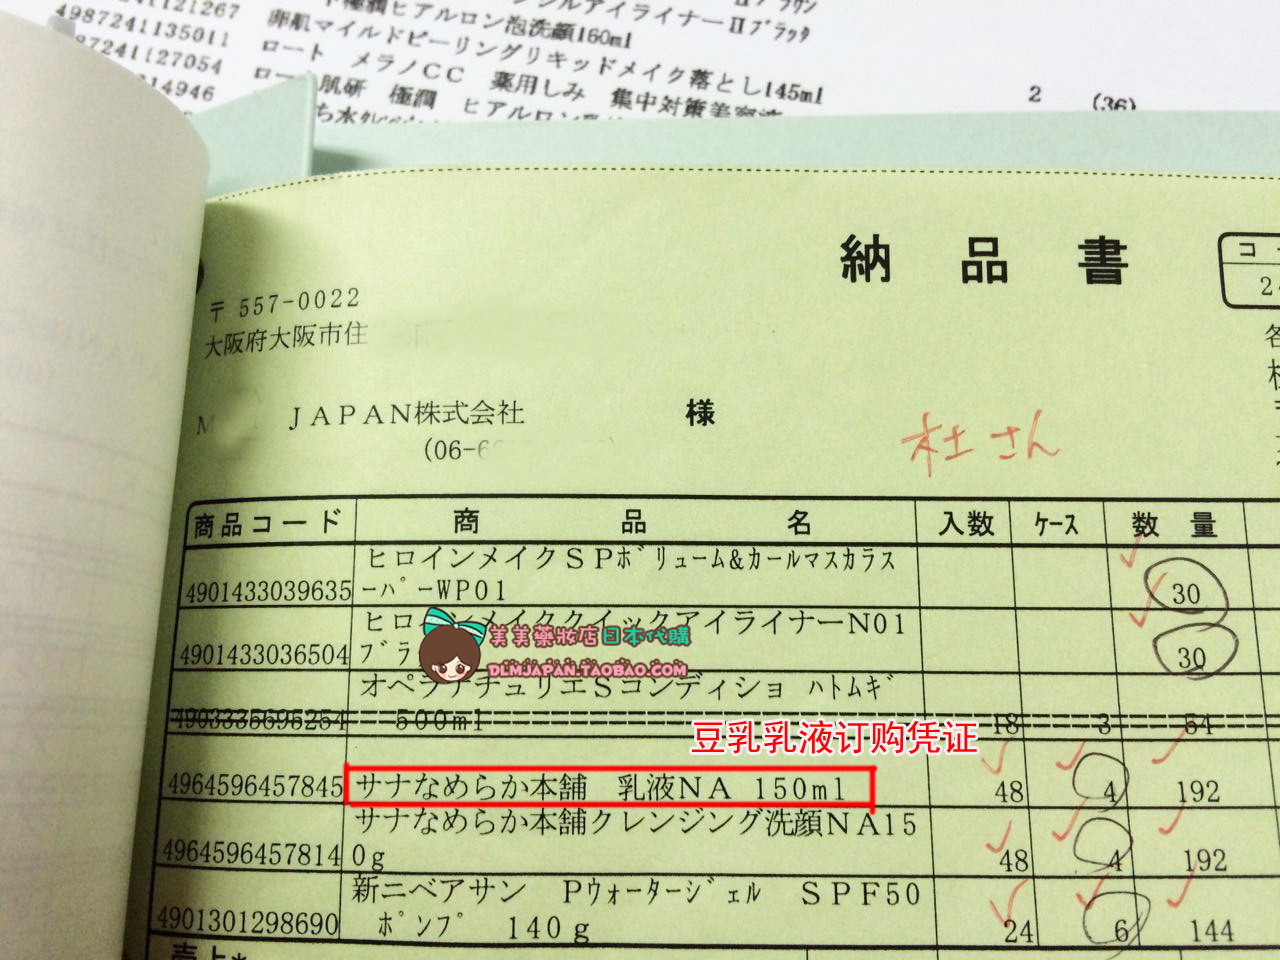 4987241135011 卵肌マイルドピーリングリキッドメイク落とし145ml
ヒアルロン泡洗顔160ml
ロート メラノCC 薬用しみ 集中対策美容液
2 (36)
納品書
〒557-0022
大阪府大阪市住
M JAPAN株式会社 様
(06-6
杜さん
商品コード 商品名 入数 ケース 数量
ヒロインメイクSPボリューム&カールマスカラス
4901433039635 ーパーWP01 30
ヒロインメイククイックアイライナーN01
4901433036504 ブラ 30
美美藥妝店日本代購
DLMJAPAN.TAOBAO.COM
オペラナチュリエSコンディショ ハトムギ
4903335695254 500ml 18 3 54
豆乳乳液订购凭证
4964596457845 サナなめらか本舗 乳液NA 150ml 48 4 192
サナなめらか本舗クレンジング洗顔NA15
4964596457814 0g 48 4 192
新ニベアサン Pウォータージェル SPF50
4901301298690 ポンプ 140g 24 6 144
売上*